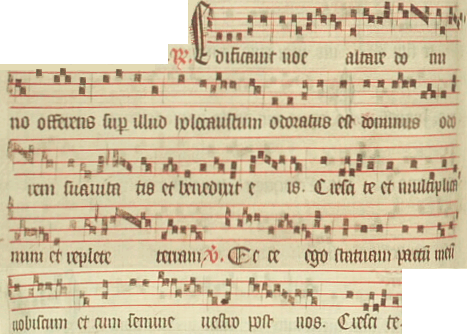 R. Edificauit noe altare do mi
no offerens sup illud holocaustum odoratus est dominus odo
rem suauita tis et benedixit e is. Cresci te et multiplica
mini et replete terram. V. Ec ce ego statuam pactū meū
uobiscum et cum semine uestro post uos. Cresci te.